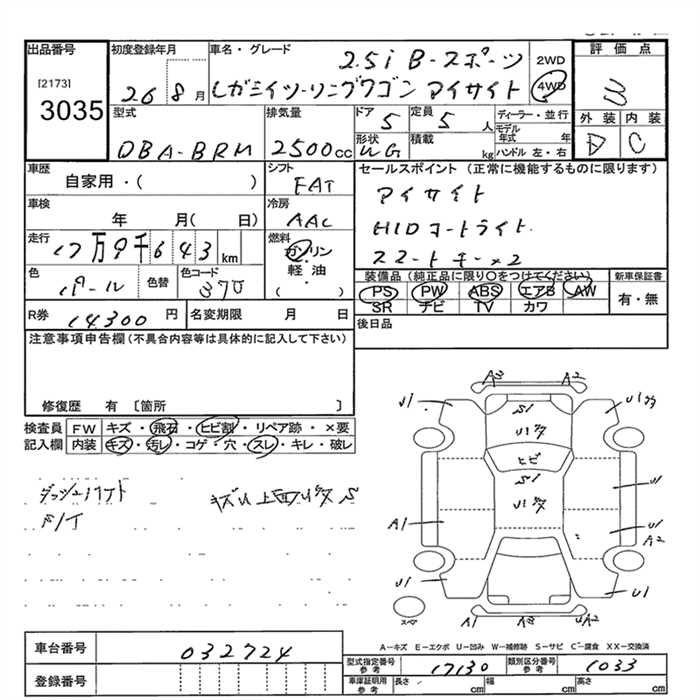 出品番号
[2173]
3035
初度登録年月
26 8月
車名・グレード
2.5i B-スポーツ
レガシィツーリングワゴン アイサイト
2WD
4WD
評価点
3
外装 内装
D C
型式
DBA-BRM
排気量
2500cc
ドア 5
形状 WG
定員 5 人
積載 kg
ディーラー・並行
モデル年式 年
ハンドル 左・右
車歴
自家用・( )
シフト
FAT
セールスポイント (正常に機能するものに限ります)
アイサイト
HIDコートライト
スマートキー×2
車検
年 月( 日)
冷房
AAC
走行
17万9千643km
燃料
ガソリン
軽・油
( )
色
パール
色替
色コード
37J
装備品(純正品に限り○をつけてください)
PS PW ABS エアB AW
SR ナビ TV カワ
新車保証書
有・無
R券 14300円
名変期限 月 日
後日品
注意事項申告欄(不具合内容等は具体的に記入して下さい)
修復歴 有 〔箇所 〕
検査員 FW キズ・飛石・ヒビ割・リペア跡・×要
記入欄 内装 キズ・汚レ・コゲ・穴・スレ・キレ・破レ
A3 A2
U1 S1
U1
ヒビ
S1
U1
A1 U1
A2
U1 U1
A1 A3S UA2
スペア
A-キズ E-エクボ U-凹み W-補修跡 S-サビ C-腐食 XX-交換済
車台番号 032724
登録番号
型式指定番号 参考 17130
類別区分番号 参考 1033
車庫証明用 参考 長さ cm 幅 cm 高さ cm